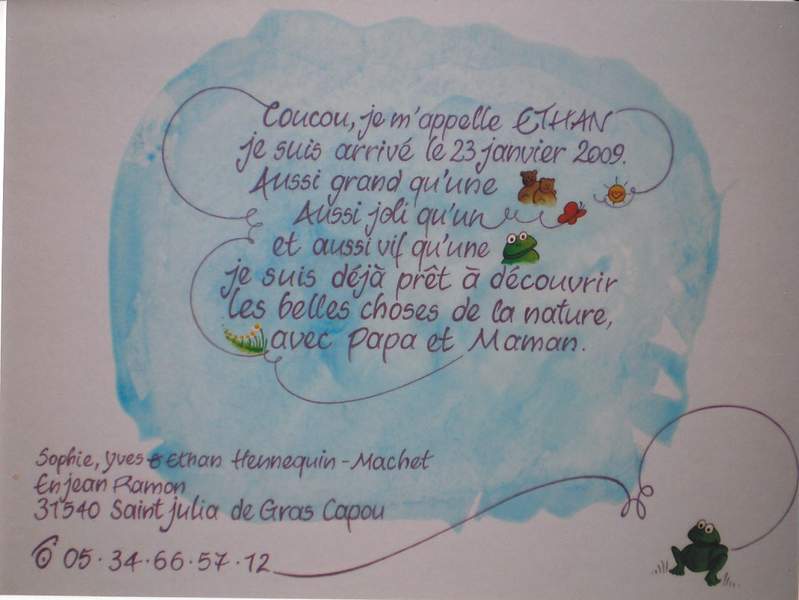 Coucou, je m'appelle ETHAN
je suis arrivé le 23 janvier 2009.
Aussi grand qu'une
Aussi joli qu'un
et aussi vif qu'une
je suis déjà prêt à découvrir
les belles choses de la nature,
avec Papa et Maman.
Sophie, Yves & Ethan Hennequin-Machet
En jean Ramon
31540 Saint julia de Gras Capou
05·34·66·57·12